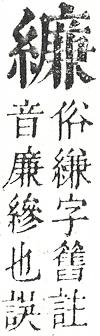 䌞
俗縑字舊註
音廉縿也誤